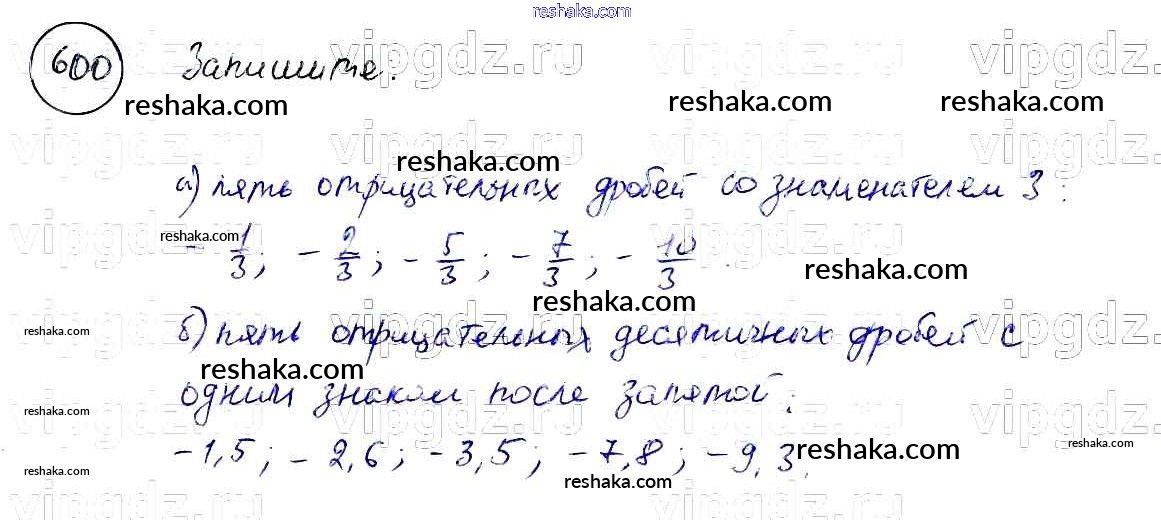 reshaka.com
600 Запишите:
vipgdz.ru vipgdz.ru vipgdz.ru vipgdz.ru
reshaka.com reshaka.com reshaka.com
vipgdz.ru vipgdz.ru vipgdz.ru vipgdz.ru
reshaka.com
а) пять отрицательных дробей со знаменателем 3:
reshaka.com
- 1/3; - 2/3; - 5/3; - 7/3; - 10/3.
reshaka.com
reshaka.com
reshaka.com
б) пять отрицательных десятичных дробей с
reshaka.com
одним знаком после запятой:
reshaka.com
-1,5; -2,6; -3,5; -7,8; -9,3.
reshaka.com
reshaka.com
reshaka.com
reshaka.com
vipgdz.ru vipgdz.ru vipgdz.ru vipgdz.ru